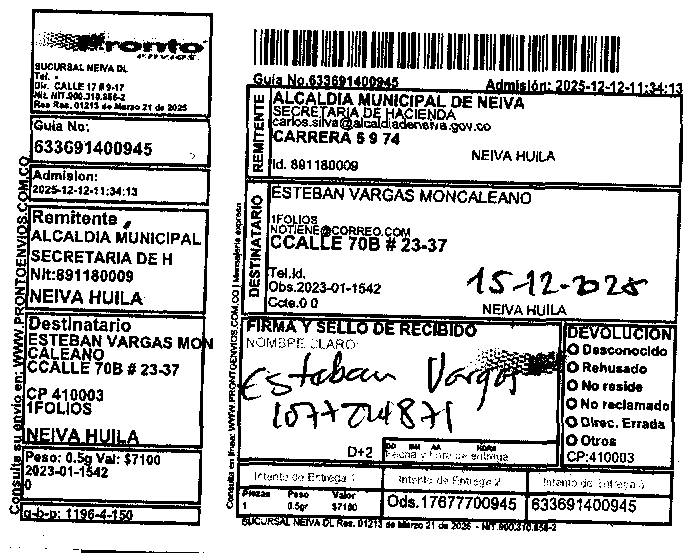 Pronto
envios
SUCURSAL NEIVA DL
Tel. -
Dir. CALLE 17 # 9-17
Nit. NIT.900.310.856-2
Res Res. 01213 de Marzo 21 de 2025
Guia No:
633691400945
Admision:
2025-12-12-11:34:13
Remitente
ALCALDIA MUNICIPAL
SECRETARIA DE H
Nit:891180009
NEIVA HUILA
Destinatario
ESTEBAN VARGAS MON
CALEANO
CCALLE 70B # 23-37
CP 410003
1FOLIOS
NEIVA HUILA
Peso: 0.5g Val: $7100
2023-01-1542
0
g-b-p: 1196-4-150
Consulte su envio en: WWW.PRONTOENVIOS.COM.CO
Guia No.633691400945 Admisión: 2025-12-12-11:34:13
REMITENTE
ALCALDIA MUNICIPAL DE NEIVA
SECRETARIA DE HACIENDA
carlos.silva@alcaldiadeneiva.gov.co
CARRERA 5 9 74
NEIVA HUILA
Id. 891180009
DESTINATARIO
ESTEBAN VARGAS MONCALEANO
1FOLIOS
NOTIENE@CORREO.COM
CCALLE 70B # 23-37
Tel.Id.
Obs.2023-01-1542
15-12-2025
Ccte.0 0
NEIVA HUILA
Consulta en linea: WWW.PRONTOENVIOS.COM.CO | Mensajeria expresa
FIRMA Y SELLO DE RECIBIDO
NOMBRE CLARO:
Esteban Vargas
D+2
DD MM AA HORA
Fecha y hora de entrega
DEVOLUCION
Desconocido
Rehusado
No reside
No reclamado
Direc. Errada
Otros
CP:410003
Intento de Entrega 1 Intento de Entrega 2 Intento de Entrega 3
Piezas Peso Valor
1 0.5gr $7100
Ods.17677700945 633691400945
SUCURSAL NEIVA DL Res. 01213 de Marzo 21 de 2025 - NIT.900.310.856-2